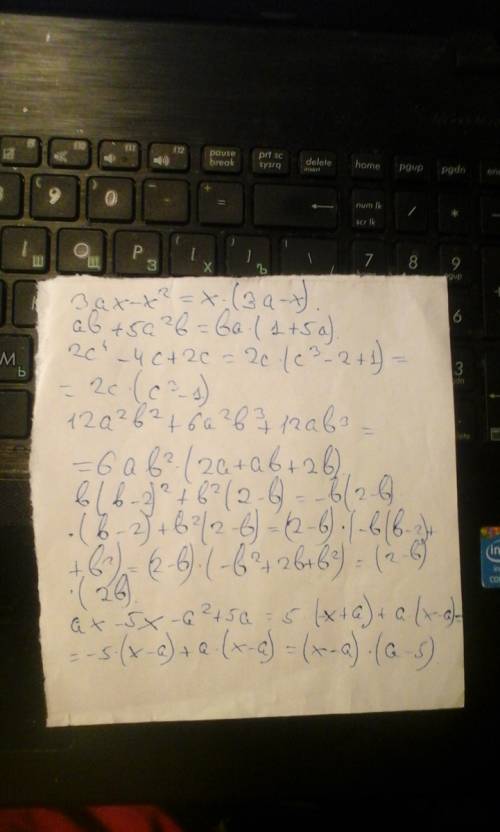 pause break
prt sc sysrq
delete insert
home
pgup
pgdn
9 0 - + =
num lk scr lk
/ *
Ш Щ Р З Х Ъ \ 7 8 9
6
М
3ax-x² = x·(3a-x).
ab+5a²b=ba·(1+5a).
2c⁴-4c+2c = 2c·(c³-2+1) =
= 2c·(c³-1)
12a²b²+6a²b³+12ab³ =
=6ab²·(2a+ab+2b)
b(b-2)²+b²(2-b) = -b(2-b)
·(b-2)+b²(2-b) = (2-b)·(-b(b-2)+
+b²) = (2-b)·(-b²+2b+b²) = (2-b)
·(2b).
ax-5x-a²+5a = 5(-x+a)+a·(x-a)=
=-5·(x-a)+a·(x-a) = (x-a)·(a-5)